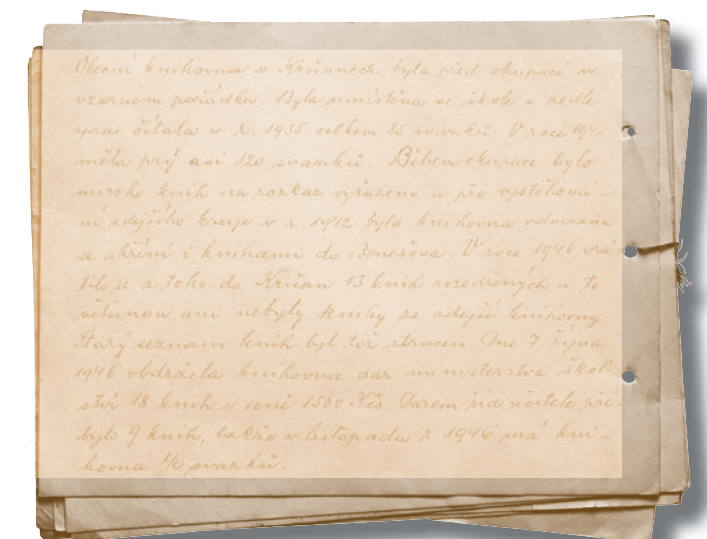 Obecní knihovna v Krňanech byla před okupací ve
vzorném pořádku. Byla umístěna ve škole a podle
zpráv čítala v r. 1935 celkem 85 svazků. V roce 1940
měla prý asi 120 svazků. Během okupace bylo
mnoho knih na rozkaz vyřazeno a při vystěhová-
ní zdejšího kraje v r. 1942 byla knihovna odvezena
se skříní i knihami do Benešova. V roce 1946 vrá
tilo se z toho do Krňan 13 knih rozedřených a to
většinou ani nebyly knihy ze zdejší knihovny.
Starý seznam knih byl též ztracen. Dne 7. října
1946 obdržela knihovna dar ministerstva škol-
ství 18 knih v ceně 1500 Kčs. Darem říd učitele při-
bylo 9 knih, takže v listopadu r 1946 má kni-
hovna 40 svazků.